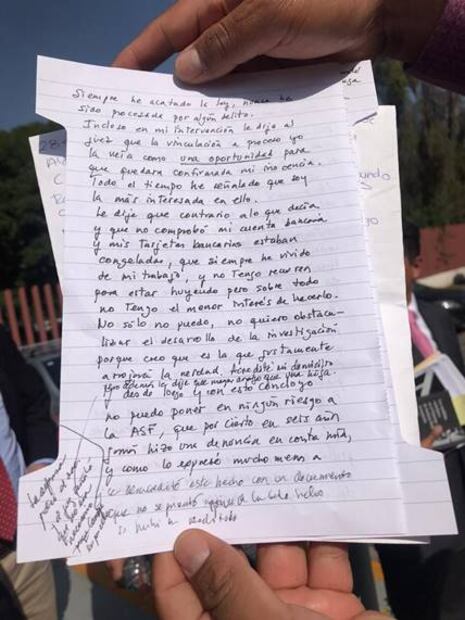 Siempre he acatado la ley, nunca he
sido procesada por algún delito.
Incluso en mi intervención le dije al
juez que la vinculación a proceso yo
la veía como una oportunidad para
que quedara confirmada mi inocencia.
Todo el tiempo he señalado que soy
la más interesada en ello.
Le dije que contrario a lo que decía
y que no comprobó mi cuenta bancaria
y mis Tarjetas bancarias estaban
congeladas, que siempre he vivido
de mi trabajo, y no Tengo recursos
para estar huyendo pero sobre todo
no Tengo el menor interés de hacerlo.
No sólo no puedo, no quiero obstacu-
lizar el desarollo de la investigación
porque creo que es la que justamente
arrojará la verdad. Acredité mi domicilio
y además le dije que mayor arraigo que una hija.
y desde luego y con esto concluyo
no puedo poner en ningún riesgo a
la ASF, que por cierto en seis años
jamás hizo una denuncia en contra mía,
y como lo expresó
este hecho con un documento
que no se